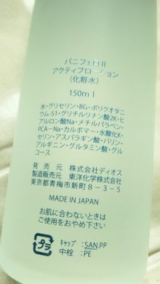 アクティブローション
(化粧水)
150ml
水・グリセリン・BG・ポリクオタニ
ウム-51・グリチルリチン酸2K・ヒ
アルロン酸Na・メチルパラベン・
PCA-Na・カルボマー・水酸化K・
セリン・アスパラギン酸・バリン・
アルギニン・グルタミン酸・グル
コース
発売元 株式会社ディオス
製造販売元 東洋化学株式会社
東京都青梅市新町8-3-5
MADE IN JAPAN
お肌に合わないときは
ご使用をおやめ下さい
プラ
キャップ:SAN,PP
中栓:PE